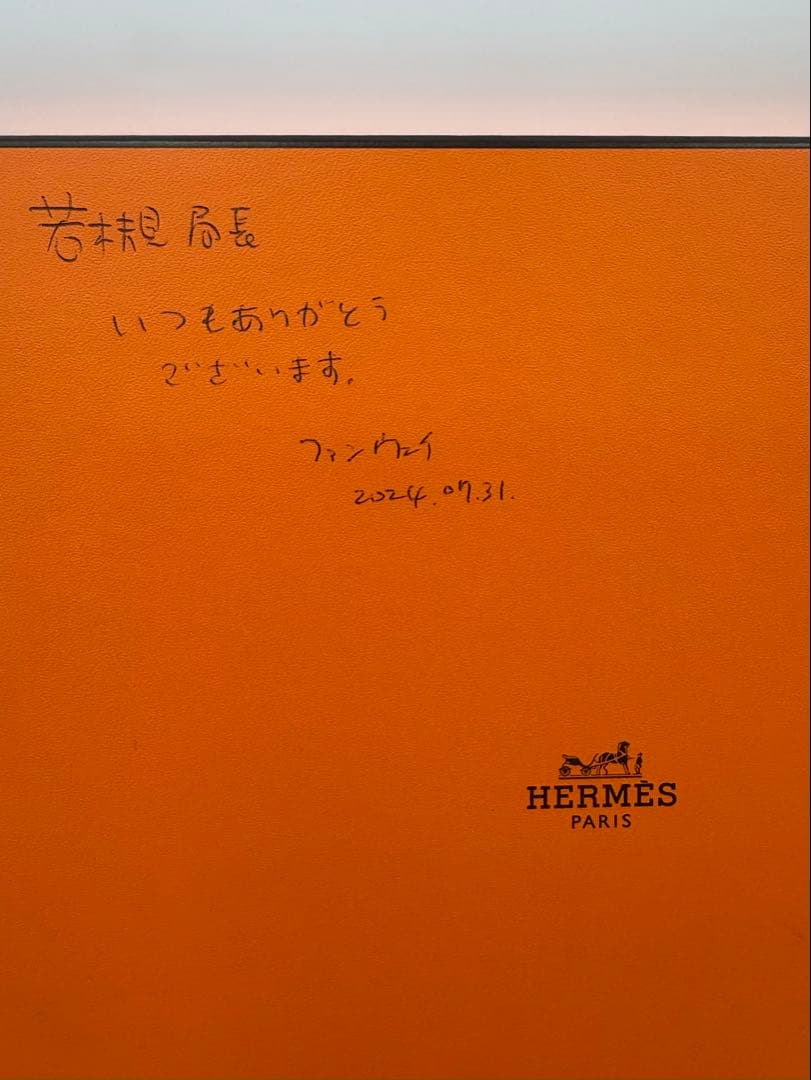 若槻 局長
いつもありがとう
ございます。
ファンウェイ
2024.07.31.
HERMÈS
PARIS